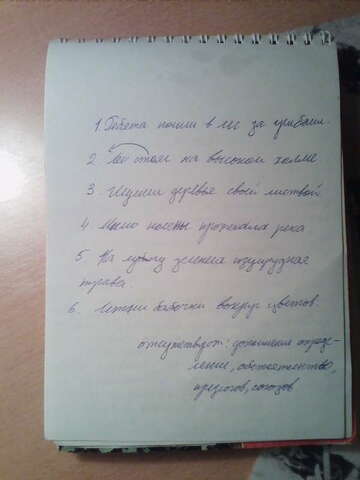 1. Ребята пошли в лес за грибами.
2 Лес стоял на высоком холме
3. деревья своей листвой
4 Мимо протекала река
5. На зеленела изумрудная
трава
6. Летали бабочки вокруг цветов.
отсутствуют: дополнение опреде-
ление, обстоятельство,
предлогов, союзов